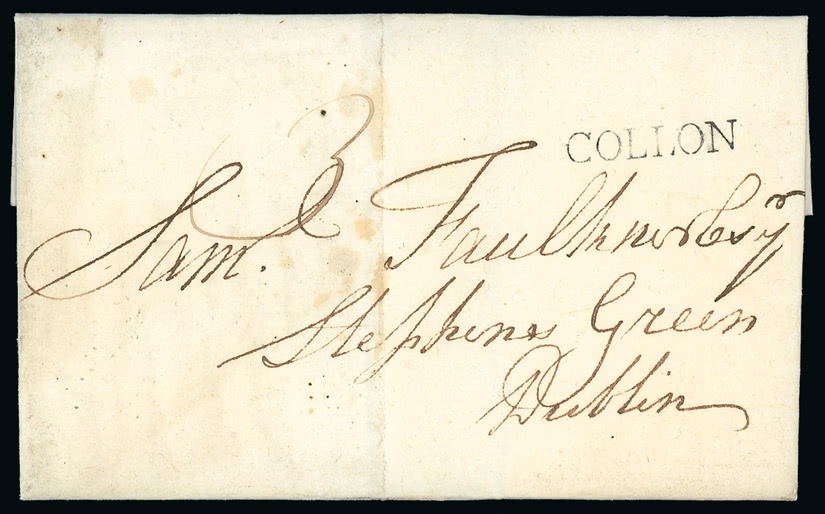 COLLON
3
Saml. Faulkner Esqr
Stephens Green
Dublin